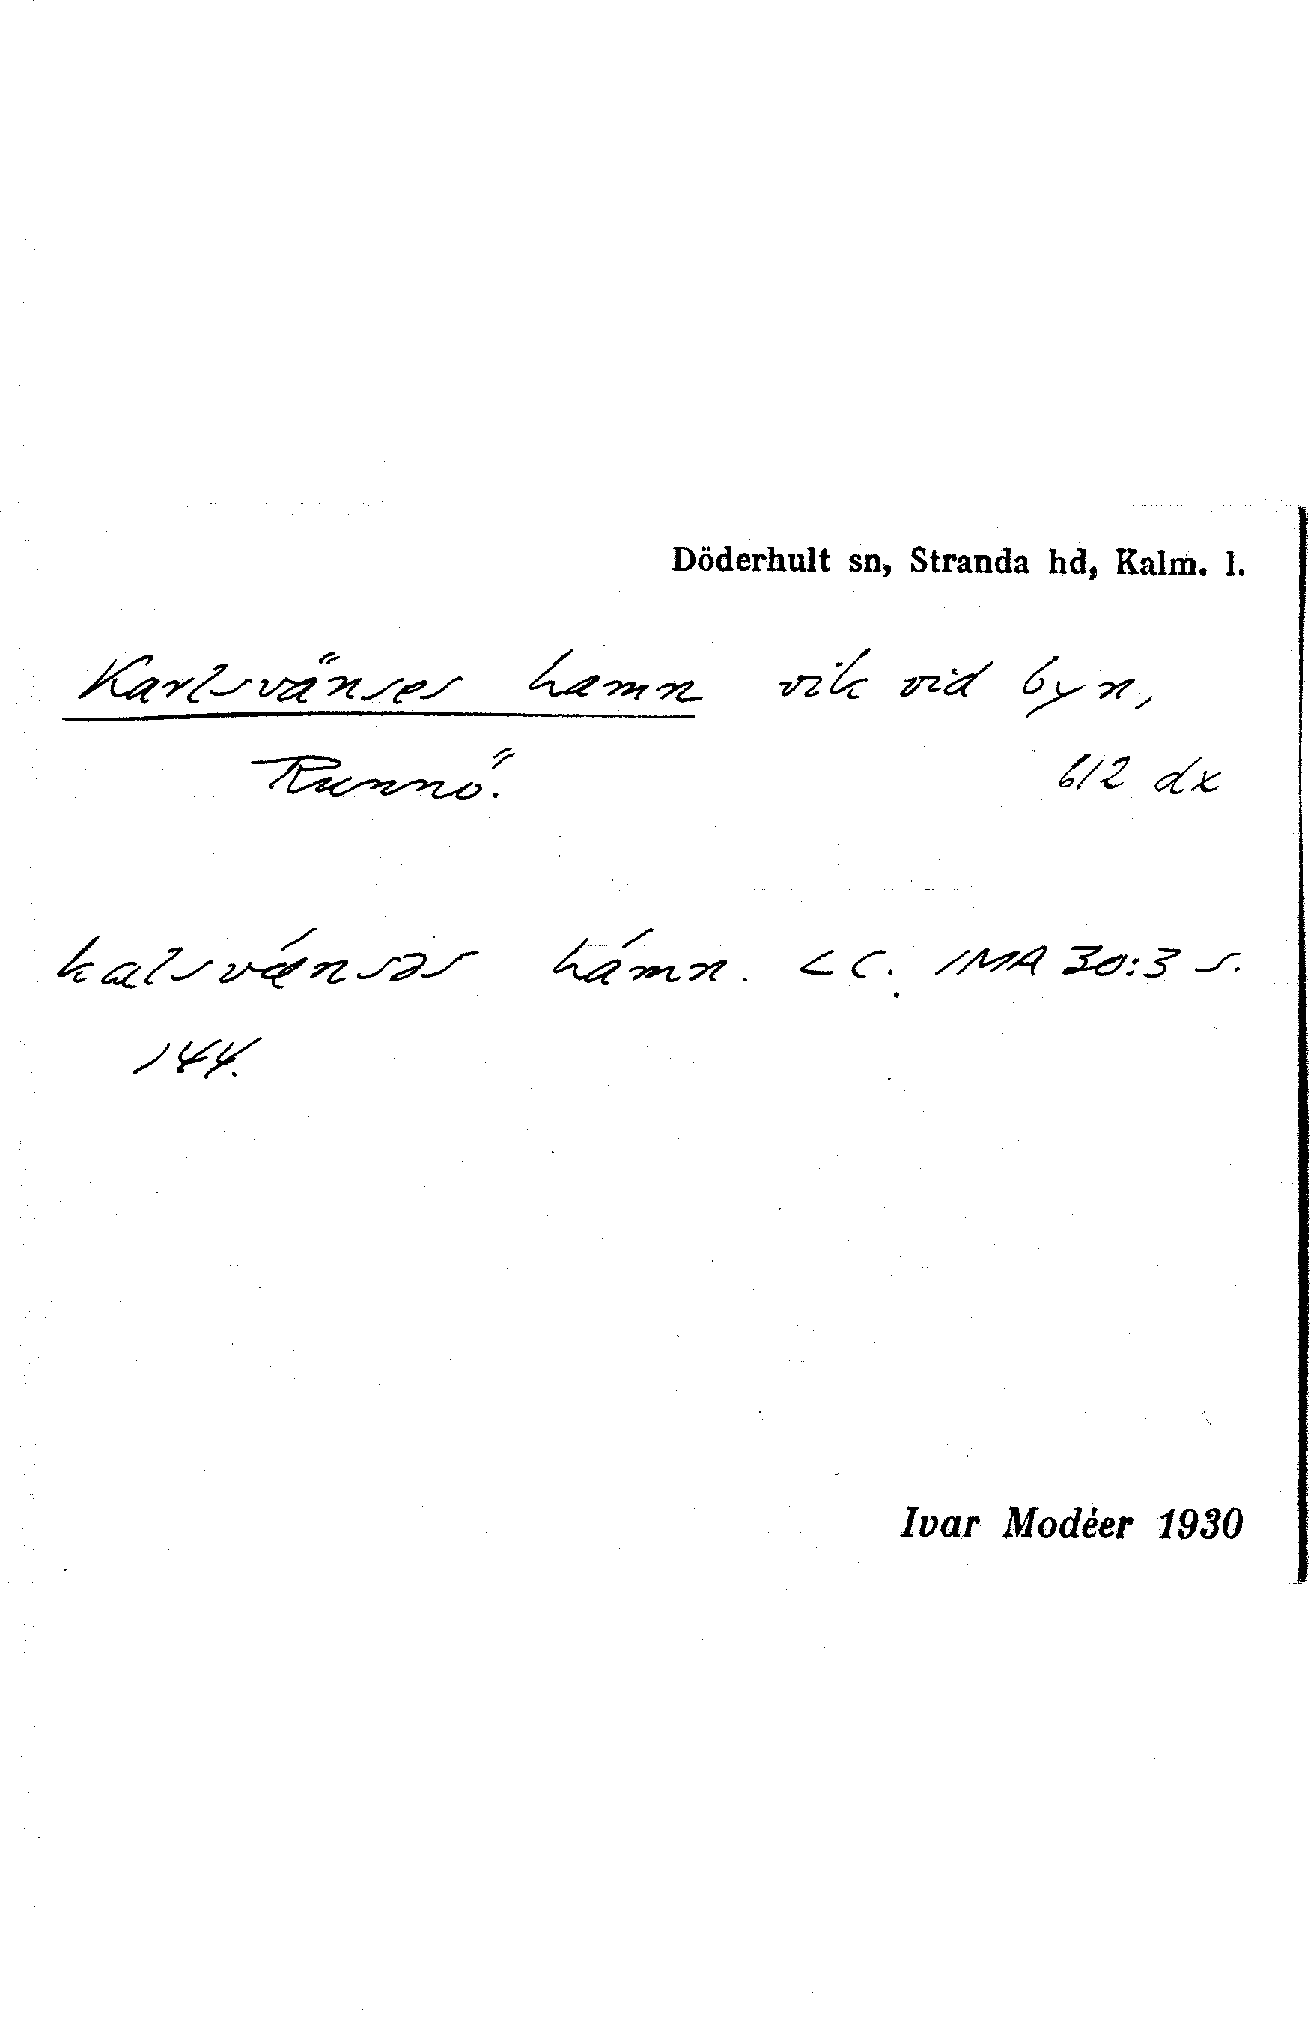 Döderhult sn, Stranda hd, Kalm. l.
Karlsvänses hamn vik vid byn,
Runnö. 612 dx
kalsvǽnsəs hámn. LC. IMA 30:3 s.
144.
Ivar Modéer 1930